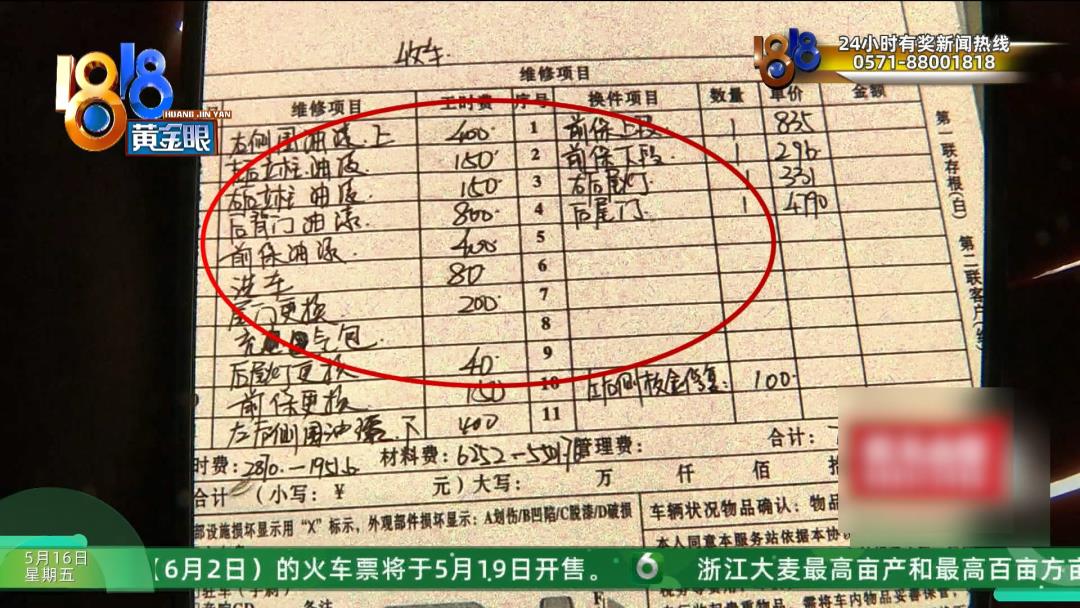 24小时有奖新闻热线
0571-88001818
1818
HUANG JIN YAN
黄金眼
收车
维修项目
维修项目 工时费 序号 换件项目 数量 单价 金额
右侧围油漆上 400 1 前保上段 1 835
右后立柱油漆 150 2 前保下段 1 296
右后立柱油漆 150 3 右后尾灯 1 331
后背门油漆 800 4 后尾门 1 4790
前保油漆 400 5
洗车 80 6
尾门更换 200 7
气包 8
后尾灯更换 40 9
前保更换 150 10 左右侧钣金修复 100
左右侧围油漆下 400 11
时费:2870 材料费:6252 管理费: 合计:
合计 (小写:¥ 元)大写: 万 仟 佰 拾
部设施损坏显示用"X"标示,外观部件损坏显示:A划伤/B凹陷/C脱漆/D破损
车辆状况物品确认:物品
本人同意本服务站依据本协
第一联存根(白) 第二联客户(红)
5月16日
星期五
(6月2日)的火车票将于5月19日开售。 6 浙江大麦最高亩产和最高百亩方亩
备注
需将车内物品妥善保管,